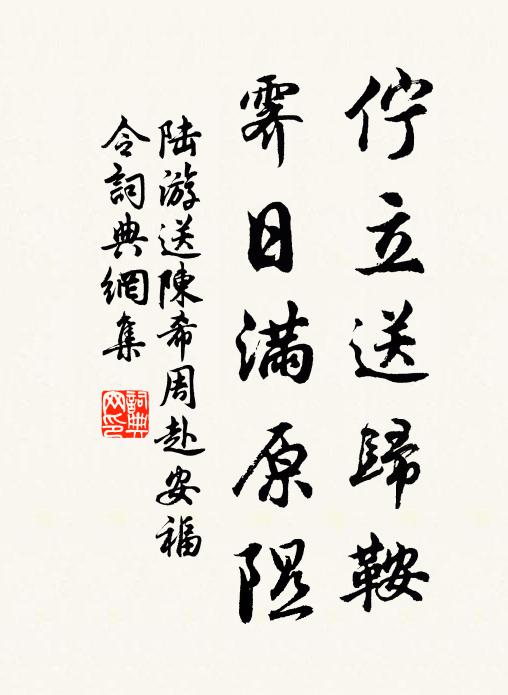 佇立送歸鞍
霽日滿原隰
陸游送陳希周赴安福
令詞典網集
詞典
网印